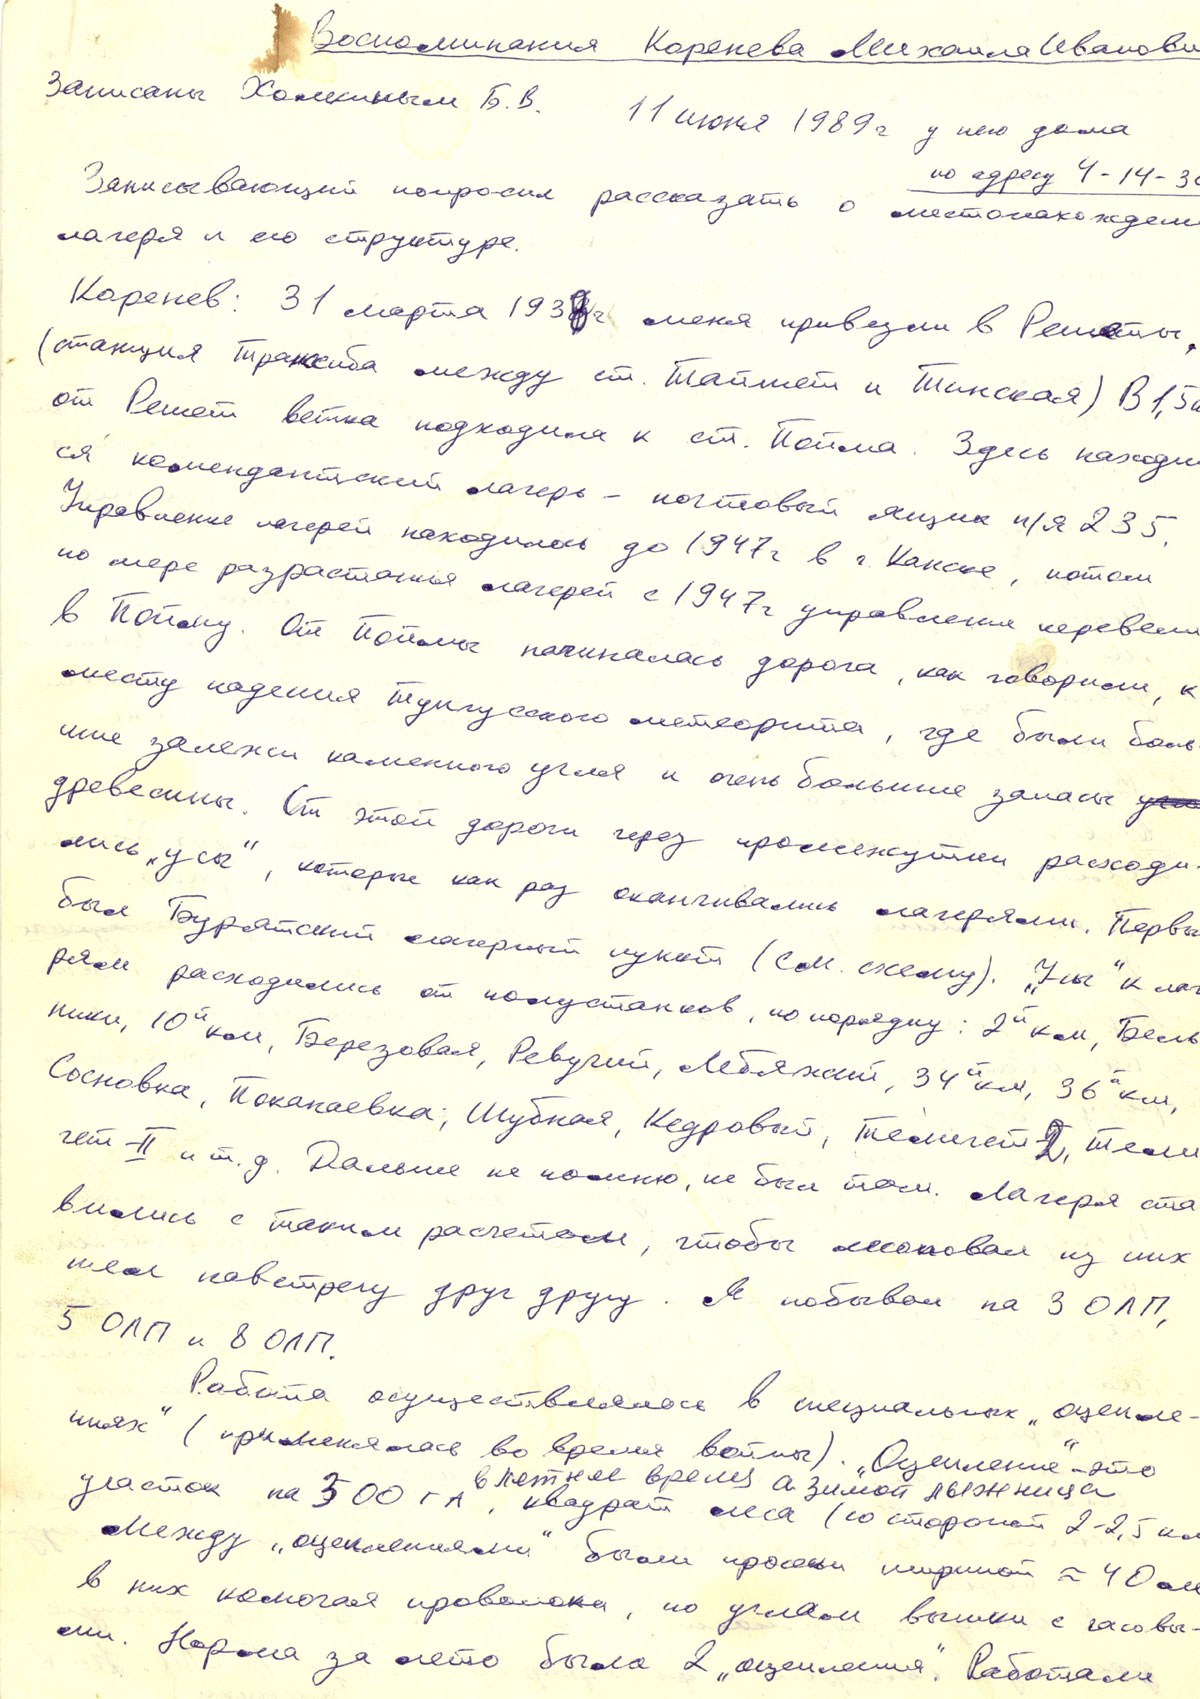 Воспоминания Коренева Михаила Иванови
Записаны Хомкиным Б.В. 11 июня 1989 г у него дома
по адресу 4-14-3
Записывающий попросил рассказать о местонахожден
лагеря и его структуре.
Коренев: 31 марта 1938 г меня привезли в Решеты,
(станция Транссиба между ст. Тайшет и Тинская) В 1,5 к
от Решет ветка подходила к ст. Пойма. Здесь находи
ся комендантский лагерь – почтовый ящик п/я 235.
Управление лагерей находилось до 1947 г в г. Канске, потом
по мере разрастанья лагерей с 1947 г управление перевели
в Пойму. От Поймы начиналась дорога, как говорили, к
месту падения Тунгусского метеорита, где были боль-
шие залежи каменного угля и очень большие запасы
древесины. От этой дороги через промежутки расходи-
лись „усы“, которые как раз оканчивались лагерями. Первы
был Бурятский лагерный пункт (см. схему). „Усы“ к лаг
рям расходились от полустанков, по порядку: 2й км, Бель
ники, 10й км, Березовая, Ревучий, Лебяжий, 34й км, 36й км,
Сосновка, Поканаевка, Шубная, Кедровый, Темичет I, Теми
чет -II и т.д. Дальше не помню, не был там. Лагеря ста
вились с таким расчетом, чтобы лесоповал из них
шел навстречу друг другу. Я побывал на 3 ОЛП,
5 ОЛП и 8 ОЛП.
Работа осуществлялась в специальных „оцепле-
ниях“ (применялась во время войны). „Оцепление“ – это
участок на 500 га в летнее время, а зимой лыжница
квадрат леса (со стороной 2-2,5 км
Между „оцеплениями“ были просеки шириной ≈ 40 м
в них колючая проволока, по углам вышки с часовы-
ми. Норма за лето была 2 „оцепления“. Работали